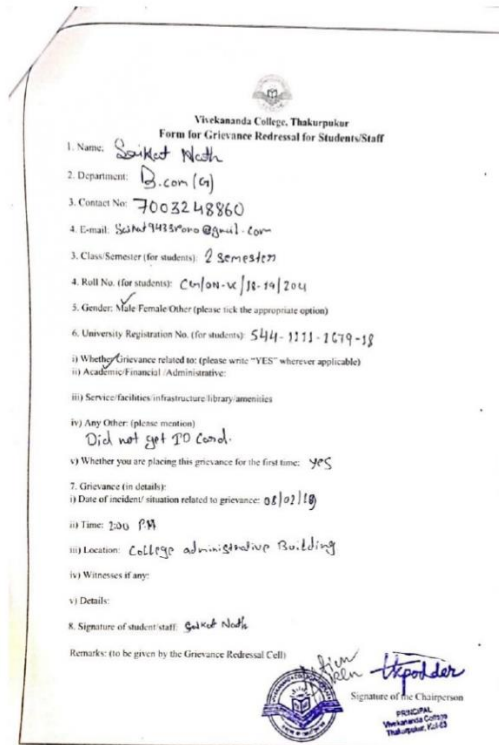 Vivekananda College, Thakurpukur
Form for Grievance Redressal for Students/Staff
1. Name: Saikat Nath
2. Department: B.com (G)
3. Contact No: 7003248860
4. E-mail: @gmail.com
3. Class/Semester (for students): 2 semester
4. Roll No. (for students):
5. Gender: Male/Female/Other (please tick the appropriate option)
6. University Registration No. (for students): 544-1111-1679-18
i) Whether Grievance related to: (please write "YES" wherever applicable)
ii) Academic/Financial /Administrative:
iii) Service/facilities/infrastructure/library/amenities
iv) Any Other: (please mention)
Did not get ID Card.
v) Whether you are placing this grievance for the first time: yes
7. Grievance (in details):
i) Date of incident/ situation related to grievance: 08/02/19
ii) Time: 2:00 P.M
iii) Location: College administrative Building
iv) Witnesses if any:
v) Details:
8. Signature of student/staff: Saikat Nath
Remarks: (to be given by the Grievance Redressal Cell)
Signature of the Chairperson
PRINCIPAL
Vivekananda College
Thakurpukur, Kol-63